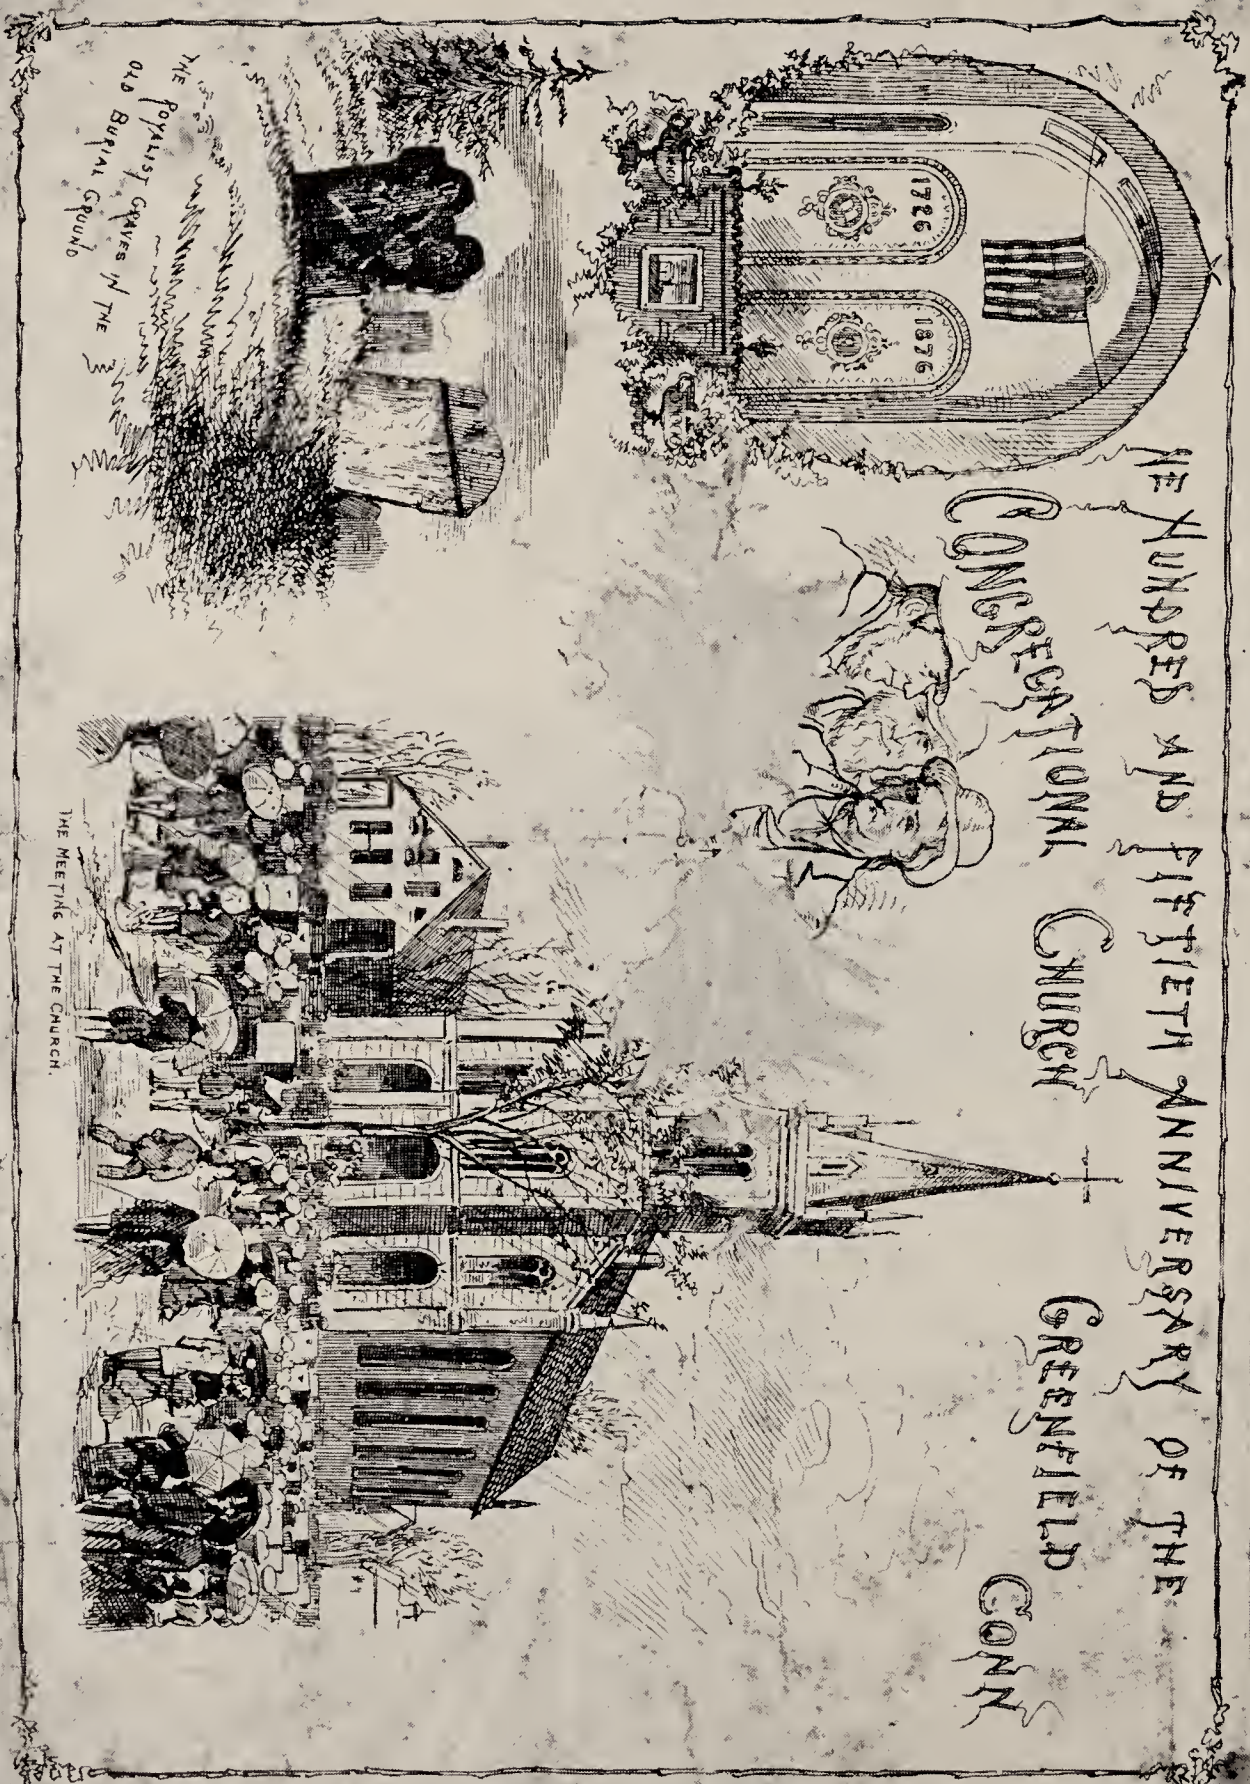 NE HUNDRED AND FIFTIETH ANNIVERSARY OF THE
CONGREGATIONAL CHURCH GREENFIELD CONN.
1726
1876
THE ROYALIST GRAVES IN THE
OLD BURIAL GROUND
THE MEETING AT THE CHURCH.